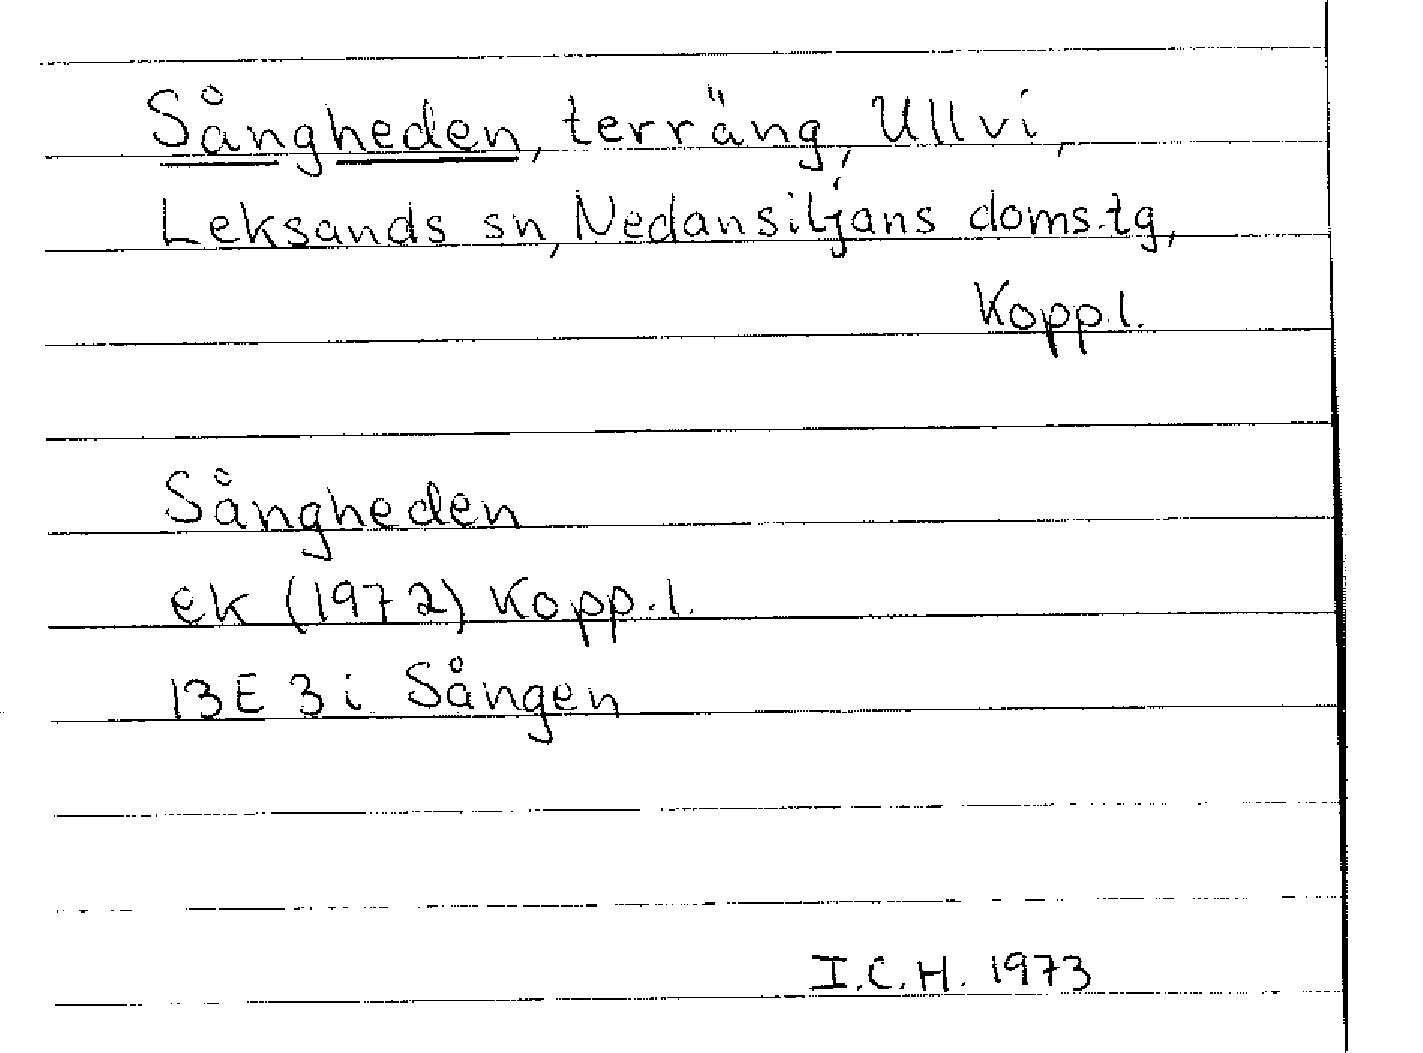 Sångheden, terräng, Ullvi,
Leksands sn, Nedansiljans doms.tg,
Kopp.l.
Sångheden
ek (1972) Kopp.l.
13E 3i Sången
I.C.H. 1973